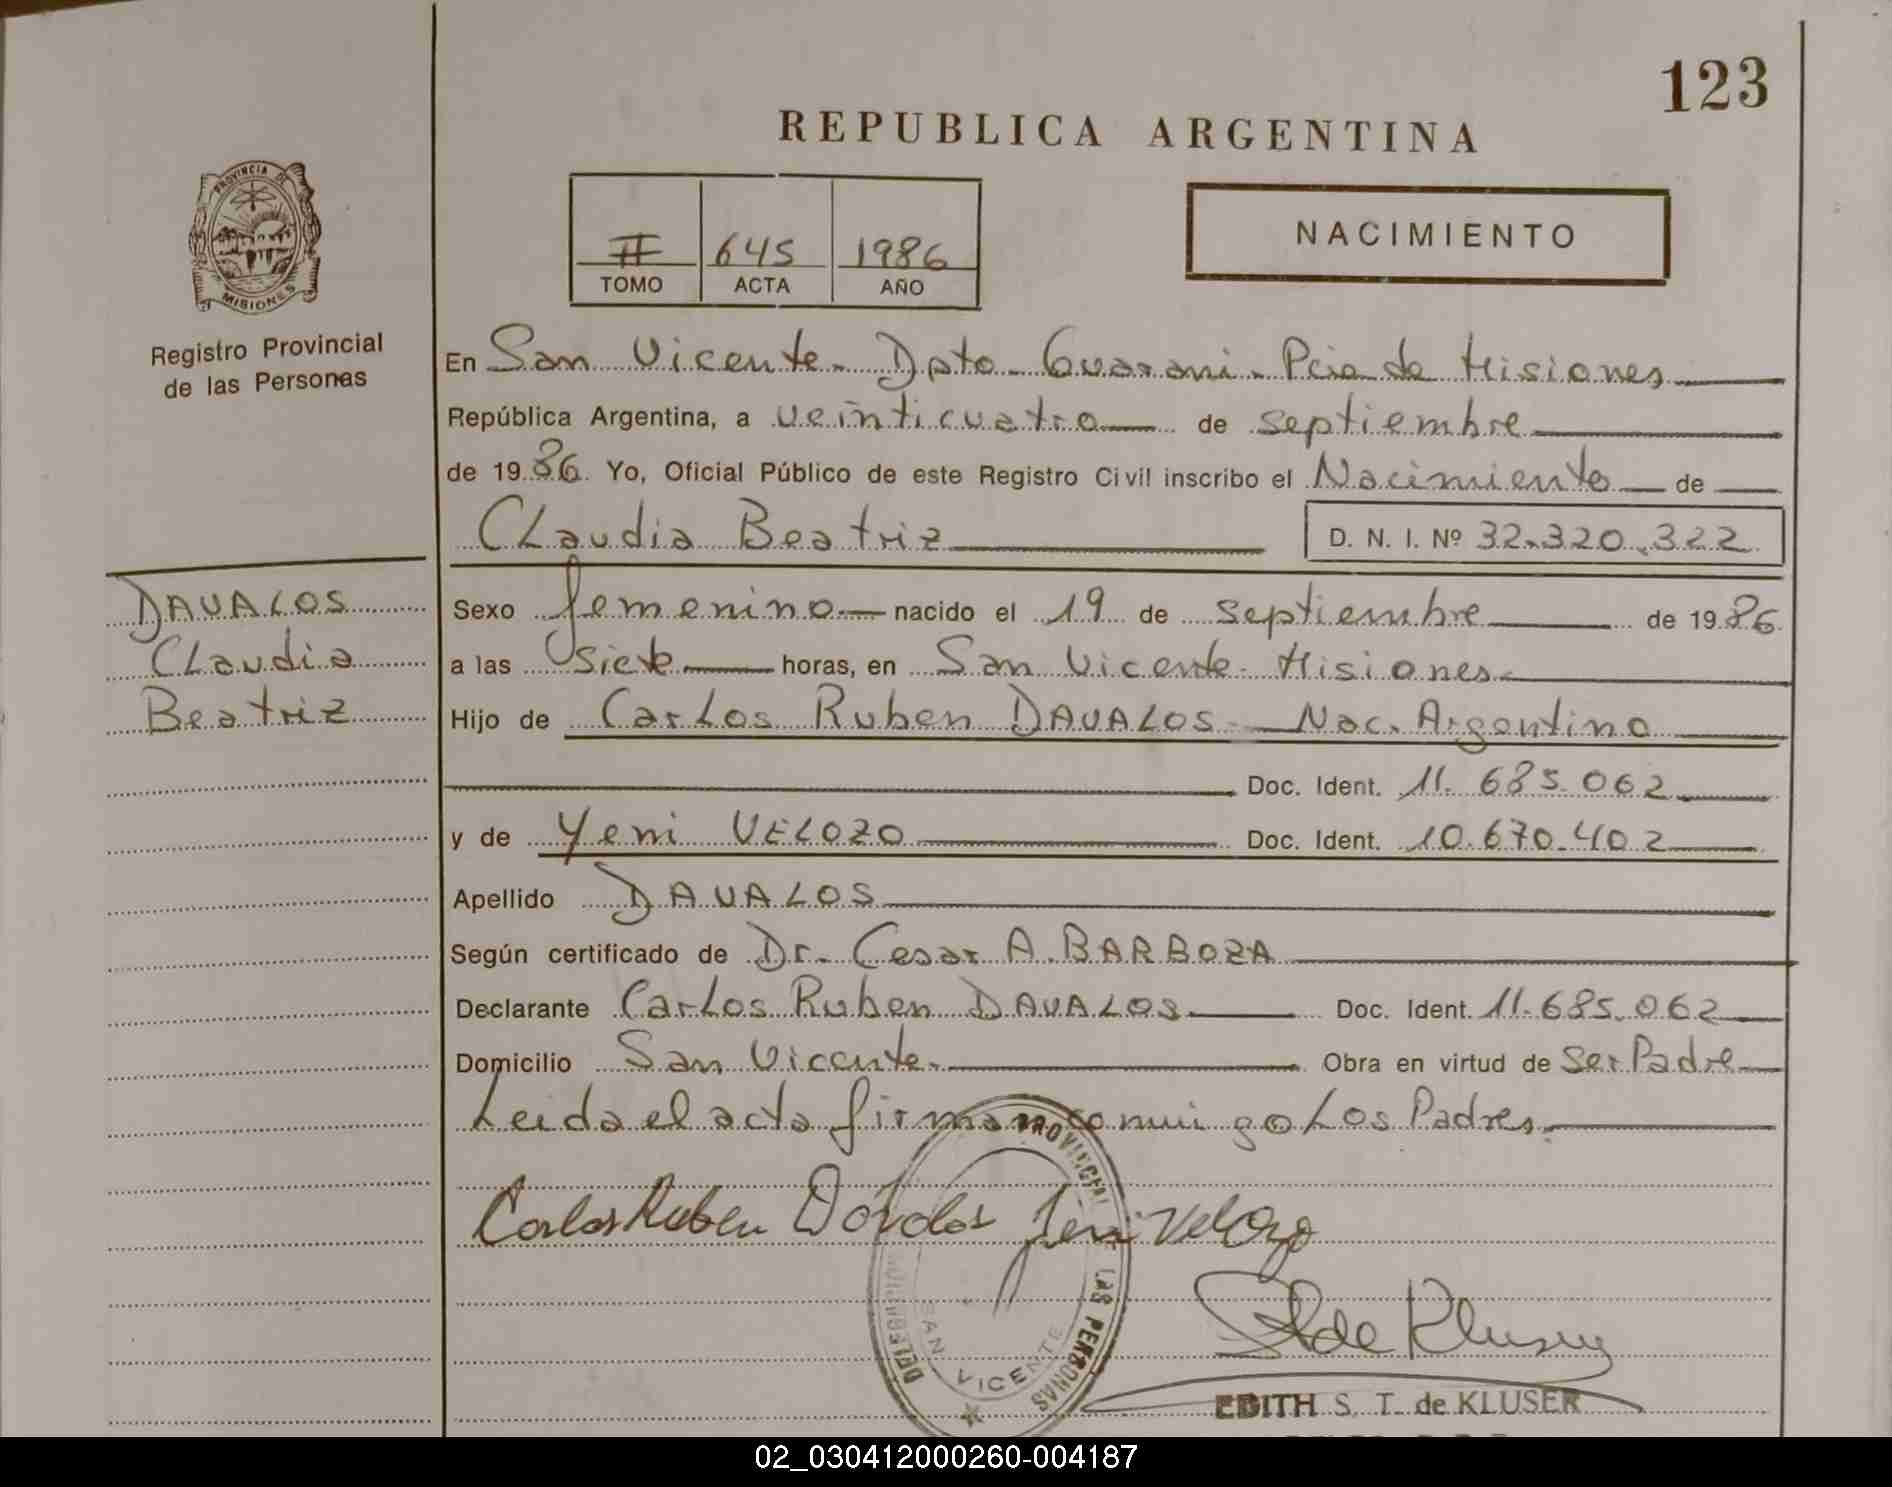 123
REPUBLICA ARGENTINA
PROVINCIA DE
MISIONES
Registro Provincial
de las Personas
II 645 1986
TOMO ACTA AÑO
NACIMIENTO
En San Vicente. Dpto. Guarani. Pcia de Misiones
República Argentina, a veinticuatro de septiembre
de 1986. Yo, Oficial Público de este Registro Civil inscribo el Nacimiento de
Claudia Beatriz D. N. I. Nº 32.320.322
DAVALOS
Claudia
Beatriz
Sexo femenino nacido el 19 de septiembre de 1986
a las siete horas, en San Vicente- Misiones.
Hijo de Carlos Ruben DAVALOS- Nac. Argentino
Doc. Ident. 11.685.062
y de Yeni VELOZO Doc. Ident. 10.670.402
Apellido DAVALOS
Según certificado de Dr. Cesar A. BARBOZA
Declarante Carlos Ruben DAVALOS Doc. Ident. 11.685.062
Domicilio San Vicente. Obra en virtud de Ser Padre
Leida el acta firman conmigo Los Padres.
Carlos Ruben Dávalos Yeni Velozo
PROVINCIAL DE LAS PERSONAS
SAN VICENTE
S T de Kluser
EDITH S. T. de KLUSER
02_030412000260-004187